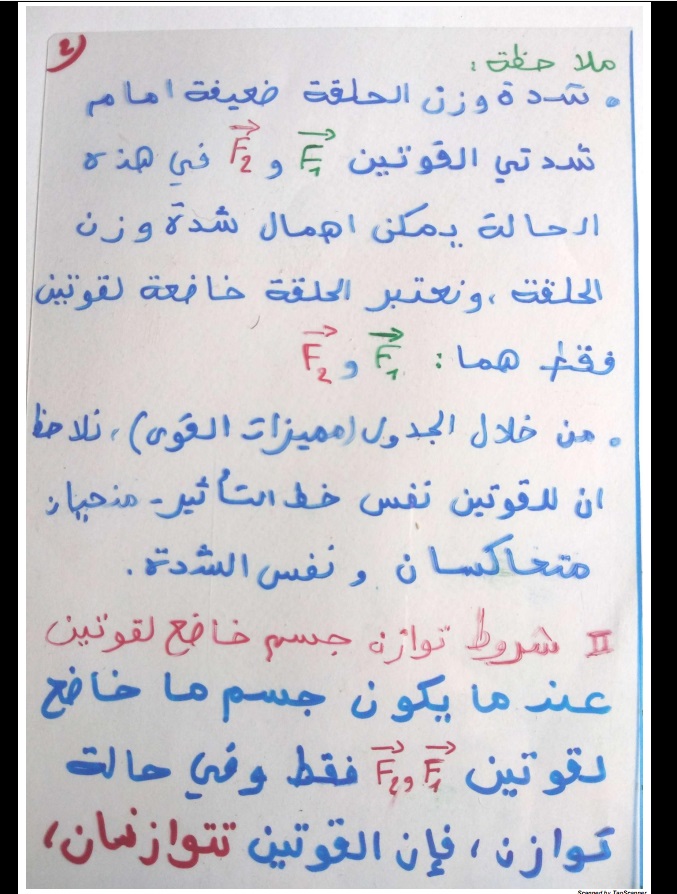 2)
ملاحظة :
• شدة وزن الحلقة ضعيفة امام
شدتي القوتين F₁ و F₂ في هذه
الحالة يمكن اهمال شدة وزن
الحلقة ، ونعتبر الحلقة خاضعة لقوتين
فقط هما : F₁ و F₂
• من خلال الجدول (مميزات القوى) ، نلاحظ
ان للقوتين نفس خط التأثير - منحيان
متعاكسان و نفس الشدة .
II شروط توازن جسم خاضع لقوتين
عندما يكون جسم ما خاضع
لقوتين F₁ و F₂ فقط وفي حالة
توازن ، فإن القوتين تتوازنان ،
Scanned by TapScanner